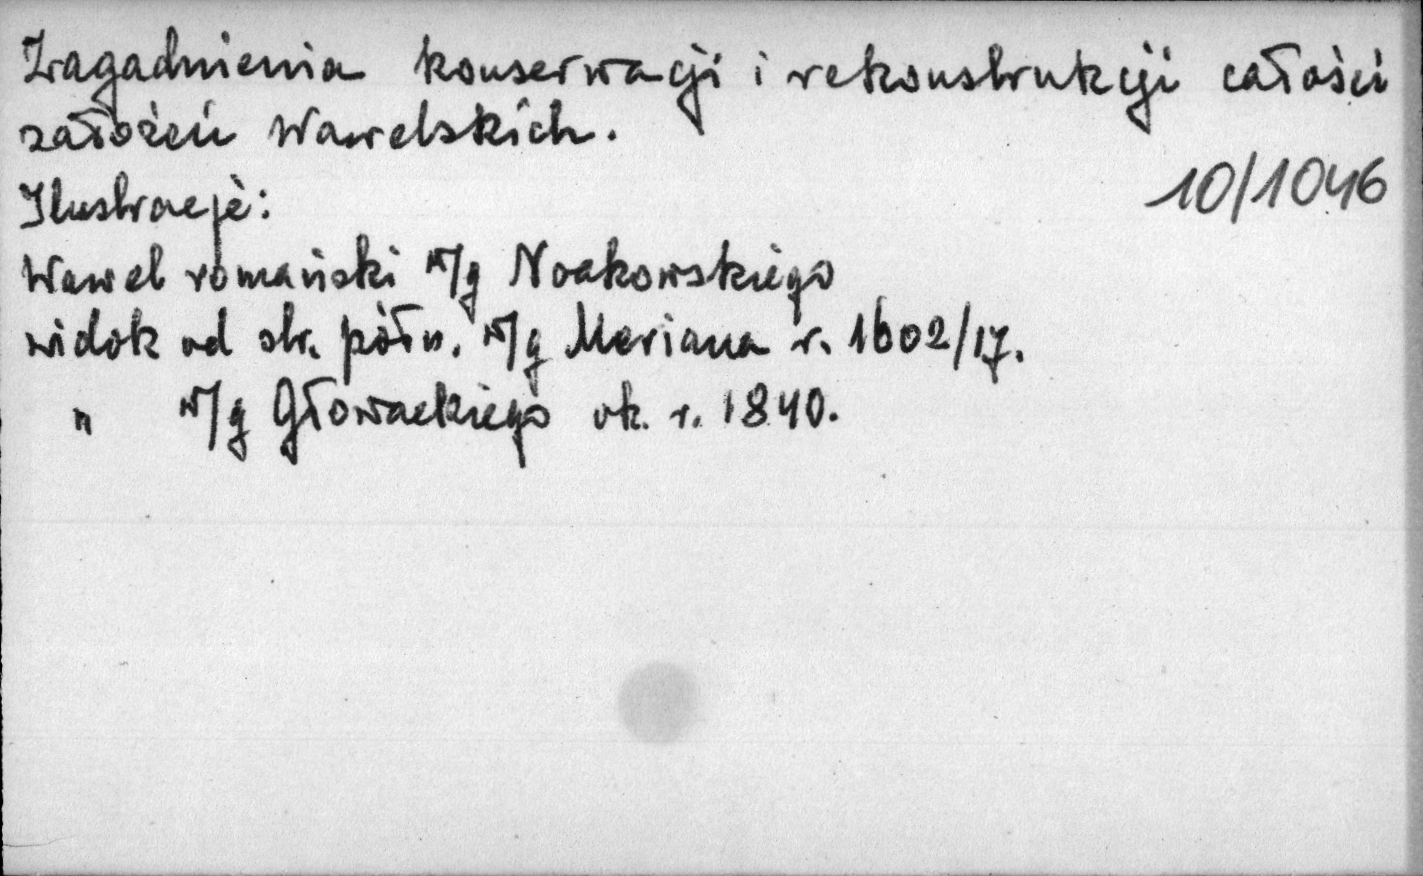 Zagadnienia konserwacji i rekonstrukcji całości
założeń Wawelskich.
10/1046
Ilustracje:
Wawel romański w/g Noakowskiego
widok od str. półn. w/g Meriana r. 1602/17.
" w/g Głowackiego ok. r. 1840.